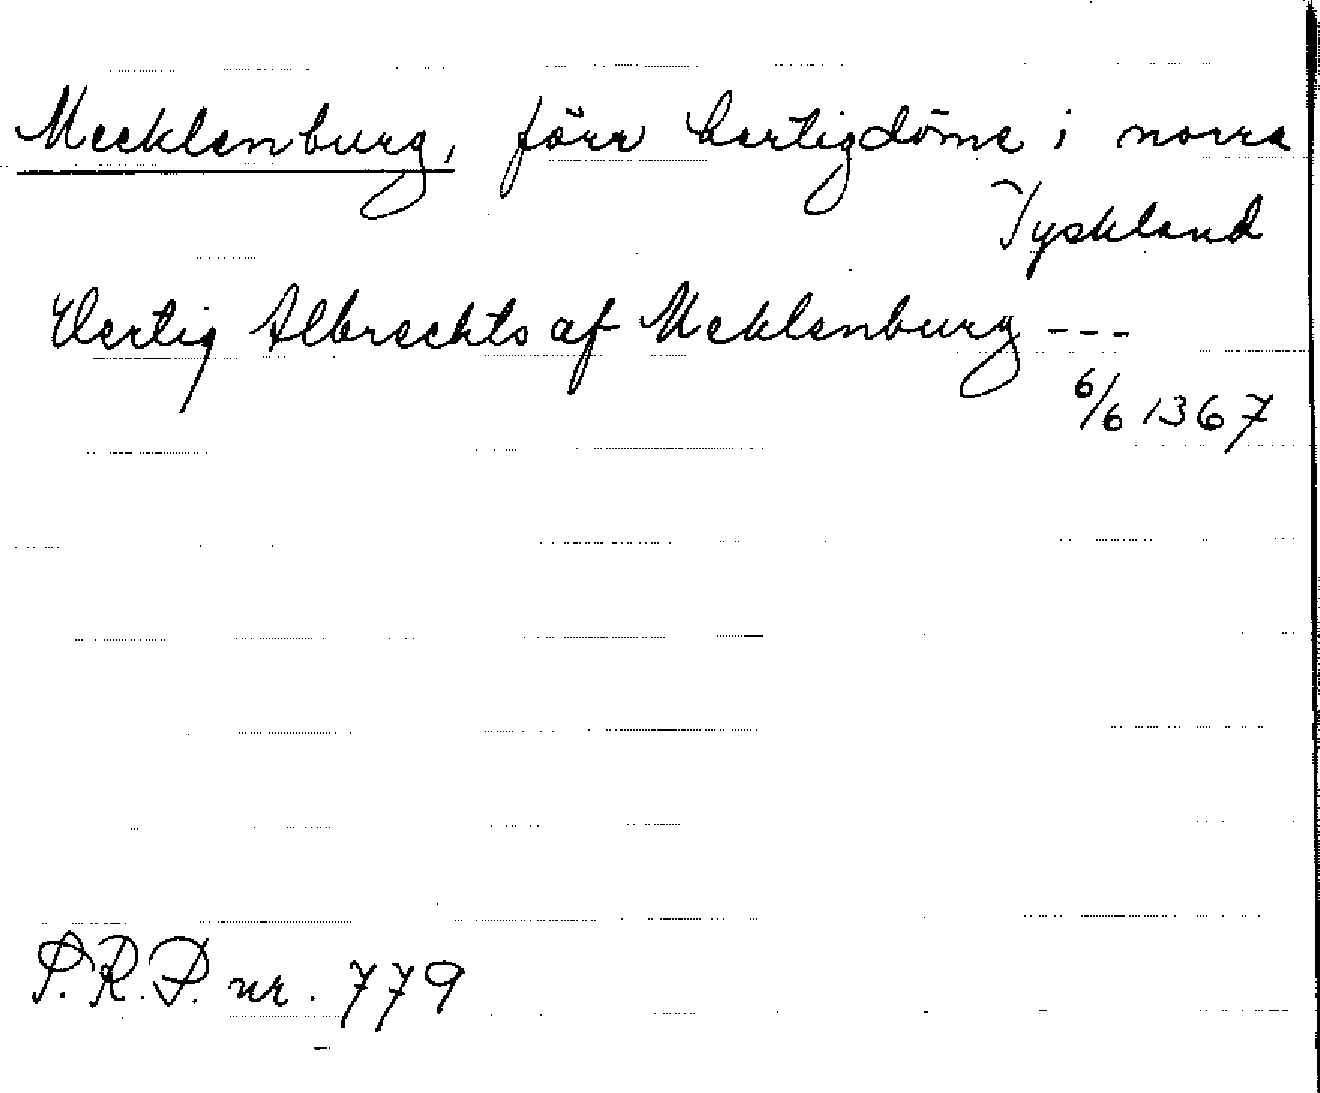 Mecklenburg, förr hertigdöme i norra
Tyskland
Hertig Albrechts af Meklenburg ---
6/6 1367
P.R.P. nr. 779